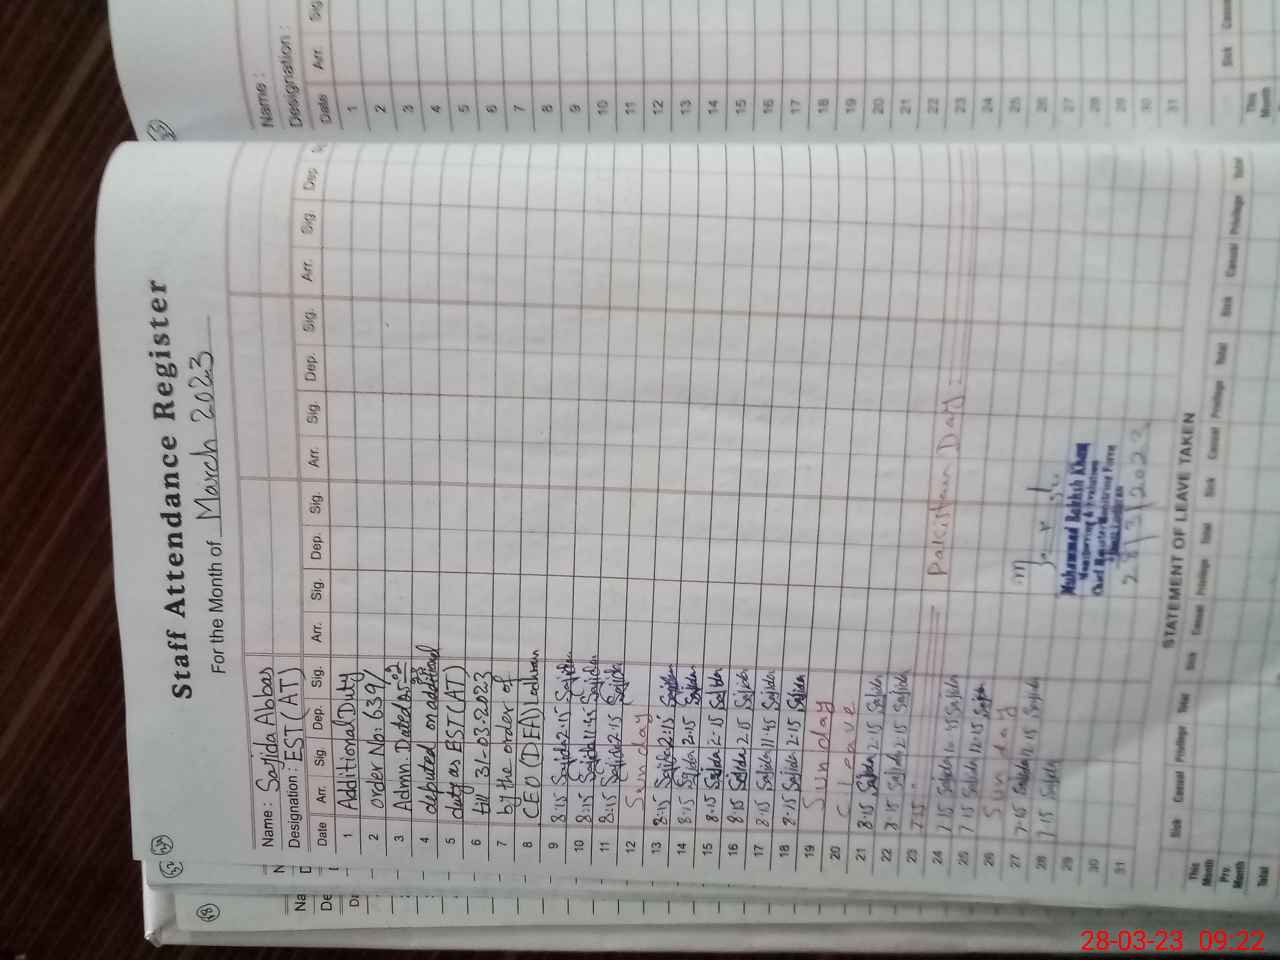 Staff Attendance Register
For the Month of March 2023
Name : Sajida Abbas
Designation : EST (AT)
Date Arr. Sig. Dep. Sig. Arr. Sig. Dep. Sig. Arr. Sig. Dep. Sig. Arr. Sig. Dep
1 Additional Duty
2 order No: 639/
3 Admn. Dated
4 on additional
5 duty as EST (AT)
6 till 31-03-2023
7 by the order of
8 CEO (DEA) Lodhran
9 8:15 Sajida 2:15 Sajida
10 8:15 Sajida 11:45 Sajida
11 8:15 Sajida 2:15 Sajida
12 Sunday
13 8:15 Sajida 2:15 Sajida
14 8:15 Sajida 2:15 Sajida
15 8:15 Sajida 2:15 Sajida
16 8:15 Sajida 2:15 Sajida
17 8:15 Sajida 11:45 Sajida
18 8:15 Sajida 2:15 Sajida
19 Sunday
20 C. leave
21 8:15 Sajida 2:15 Sajida
22 8:15 Sajida 2:15 Sajida
23 Pakistan Day
24 7:15 Sajida Sajida
25 7:15 Sajida 12:15 Sajida
26 Sunday
27 7:15 Sajida 12:15 Sajida
28 7:15 Sajida
29
30
31
Muhammad Bakhsh Khan
Monitoring & Evaluation
Chief Minister Monitoring Force
28/3/2023
STATEMENT OF LEAVE TAKEN
Sick Casual Privilege Total Sick Casual Privilege Total Sick Casual Privilege Total Sick Casual Privilege Total
This Month
Pre Month
Total
Name :
Designation :
Date Arr. Sig
1
2
3
4
5
6
7
8
9
10
11
12
13
14
15
16
17
18
19
20
21
22
23
24
25
26
27
28
29
30
31
Sick
This Month
28-03-23 09:22